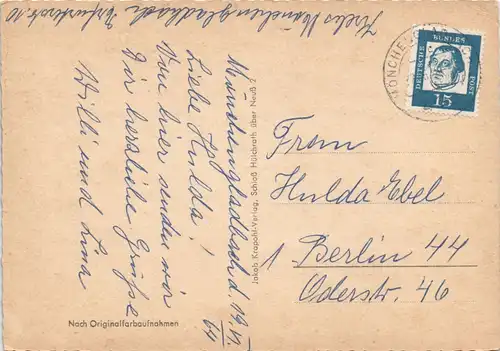 Krebs Mönchengladbach Erfurterstr. 10
Mönchengladbach d. 19.VI.
64
Liebe Hulda!
Von hier senden wir
Dir herzliche Grüße
Willi und Luna
Nach Originalfarbaufnahmen
Jakob Krapohl-Verlag, Schloß Hülchrath über Neuß 2
MÖNCHEN
DEUTSCHE
BUNDES
POST
15
Frau
Hulda Ebel
1 Berlin 44
Oderstr. 46